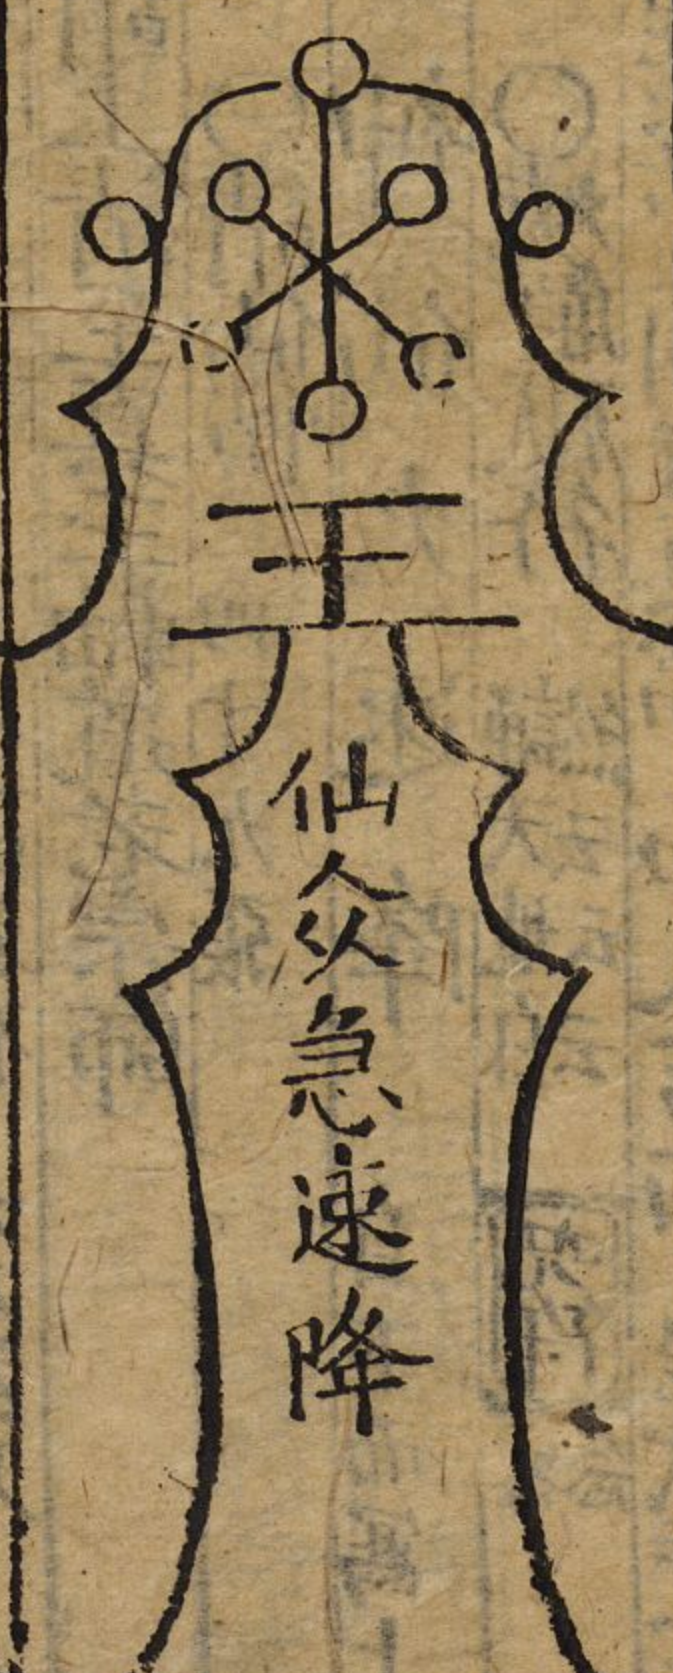 王
仙众急速降